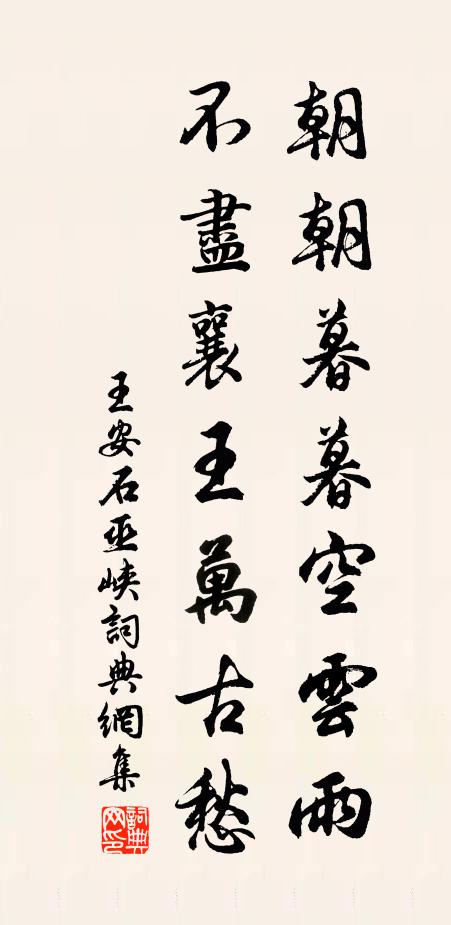 朝朝暮暮空雲雨
不盡襄王萬古愁
王安石巫峽詞典網集
詞典網印